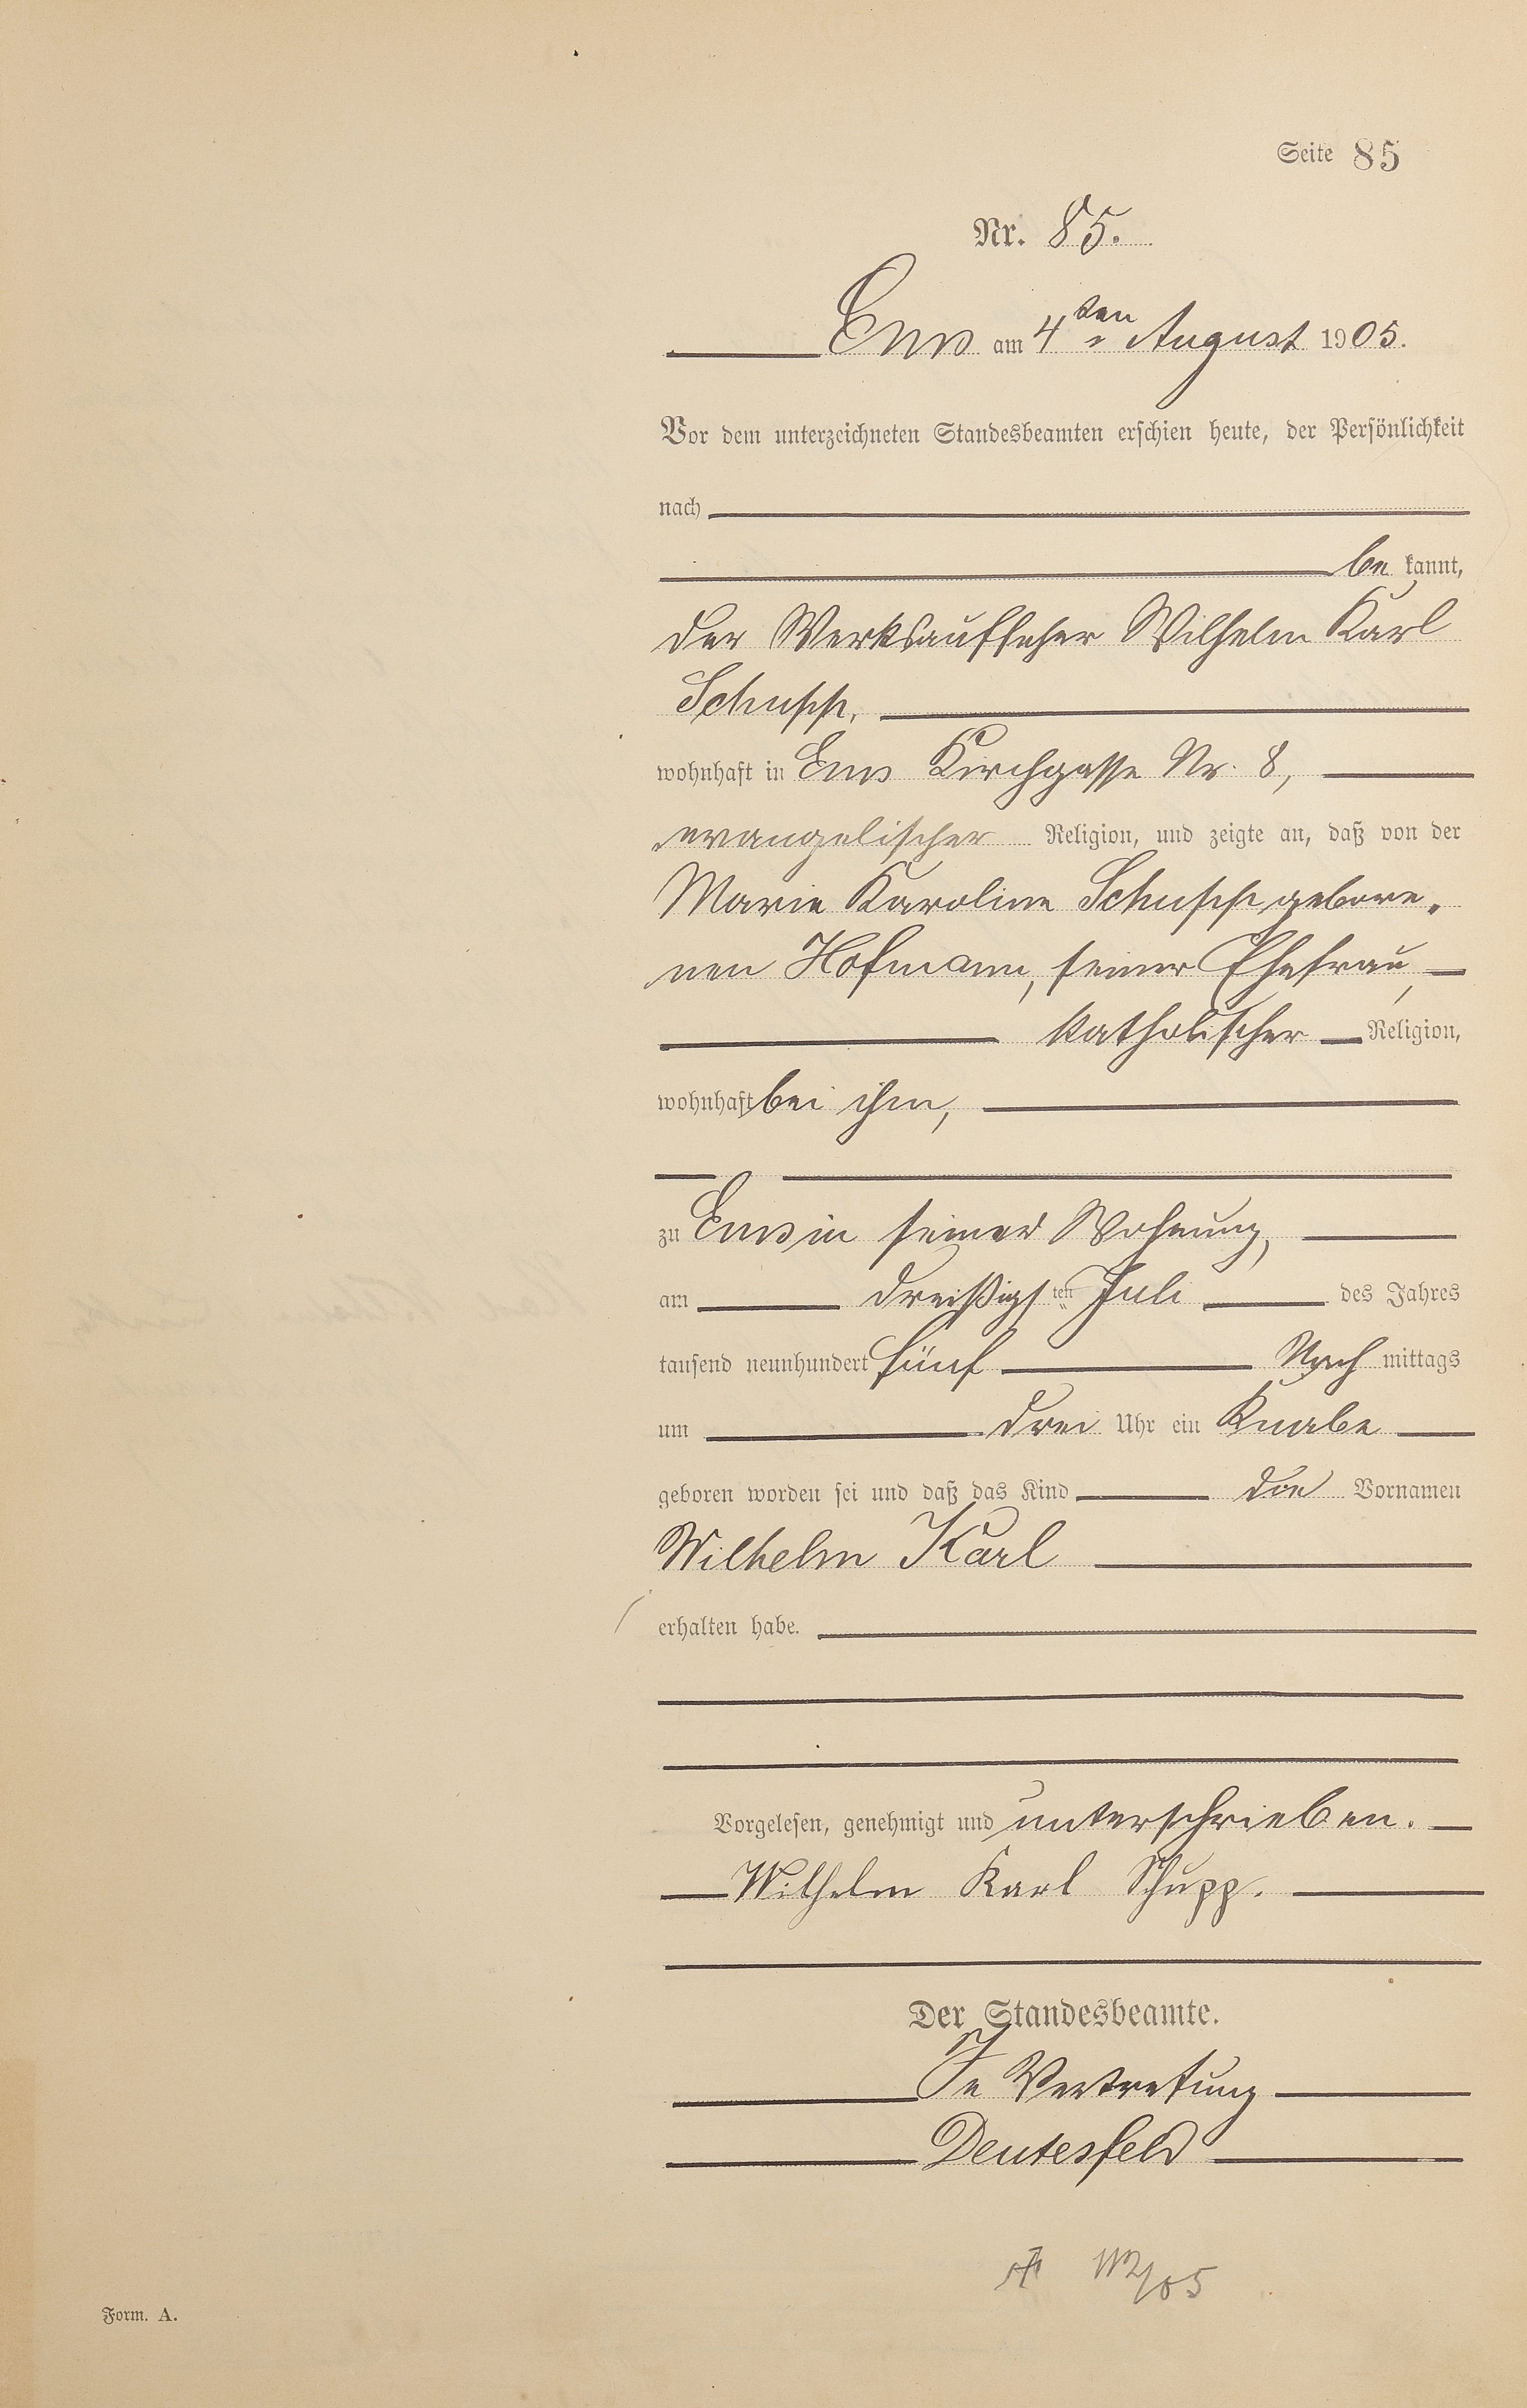 Seite 85
Nr. 85.
Ems am 4ten August 1905.
Vor dem unterzeichneten Standesbeamten erschien heute, der Persönlichkeit
nach
be kannt,
der Werksaufseher Wilhelm Karl
Schupp,
wohnhaft in Ems Kirchgasse Nr. 8,
evangelischer Religion, und zeigte an, daß von der
Marie Karoline Schupp gebore-
nen Hofmann, seiner Ehefrau,
katholischer Religion,
wohnhaft bei ihm,
zu Ems in seiner Wohnung,
am dreißigsten Juli des Jahres
tausend neunhundert fünf Nach mittags
um drei Uhr ein Knabe
geboren worden sei und daß das Kind die Vornamen
Wilhelm Karl
erhalten habe.
Vorgelesen, genehmigt und unterschrieben.
Wilhelm Karl Schupp.
Der Standesbeamte.
In Vertretung
Deutesfeld
Form. A.